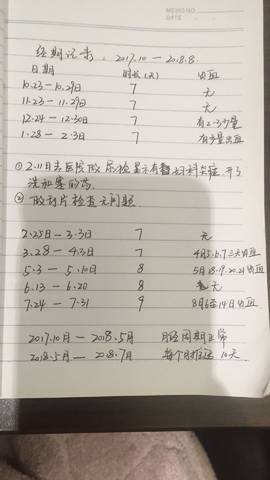 MEMO NO.
DATE
经期记录: 2017.10 — 2018.8.
日期 时长(天) 出血
10.23 — 10.29日 7 无
11.23 — 11.29日 7 无
12.24 — 12.30日 7 有2-3少量
1.28 — 2.3日 7 有少量出血
① 2.11日去医院做尿检显示有妇科炎症,开了
洗加塞的药.
② 做刮片检查无问题.
2.25日 — 3.3日 7 无
3.28 — 4.3日 7 4月5.6.7三天出血
5.3 — 5.10日 8 5月18.19.20.21出血
6.13 — 6.20 8 无
7.24 — 7.31 9 8月6至14日出血
2017.10月 — 2018.5月 月经周期正常
2018.5月 — 2018.7月 每个月推迟10天